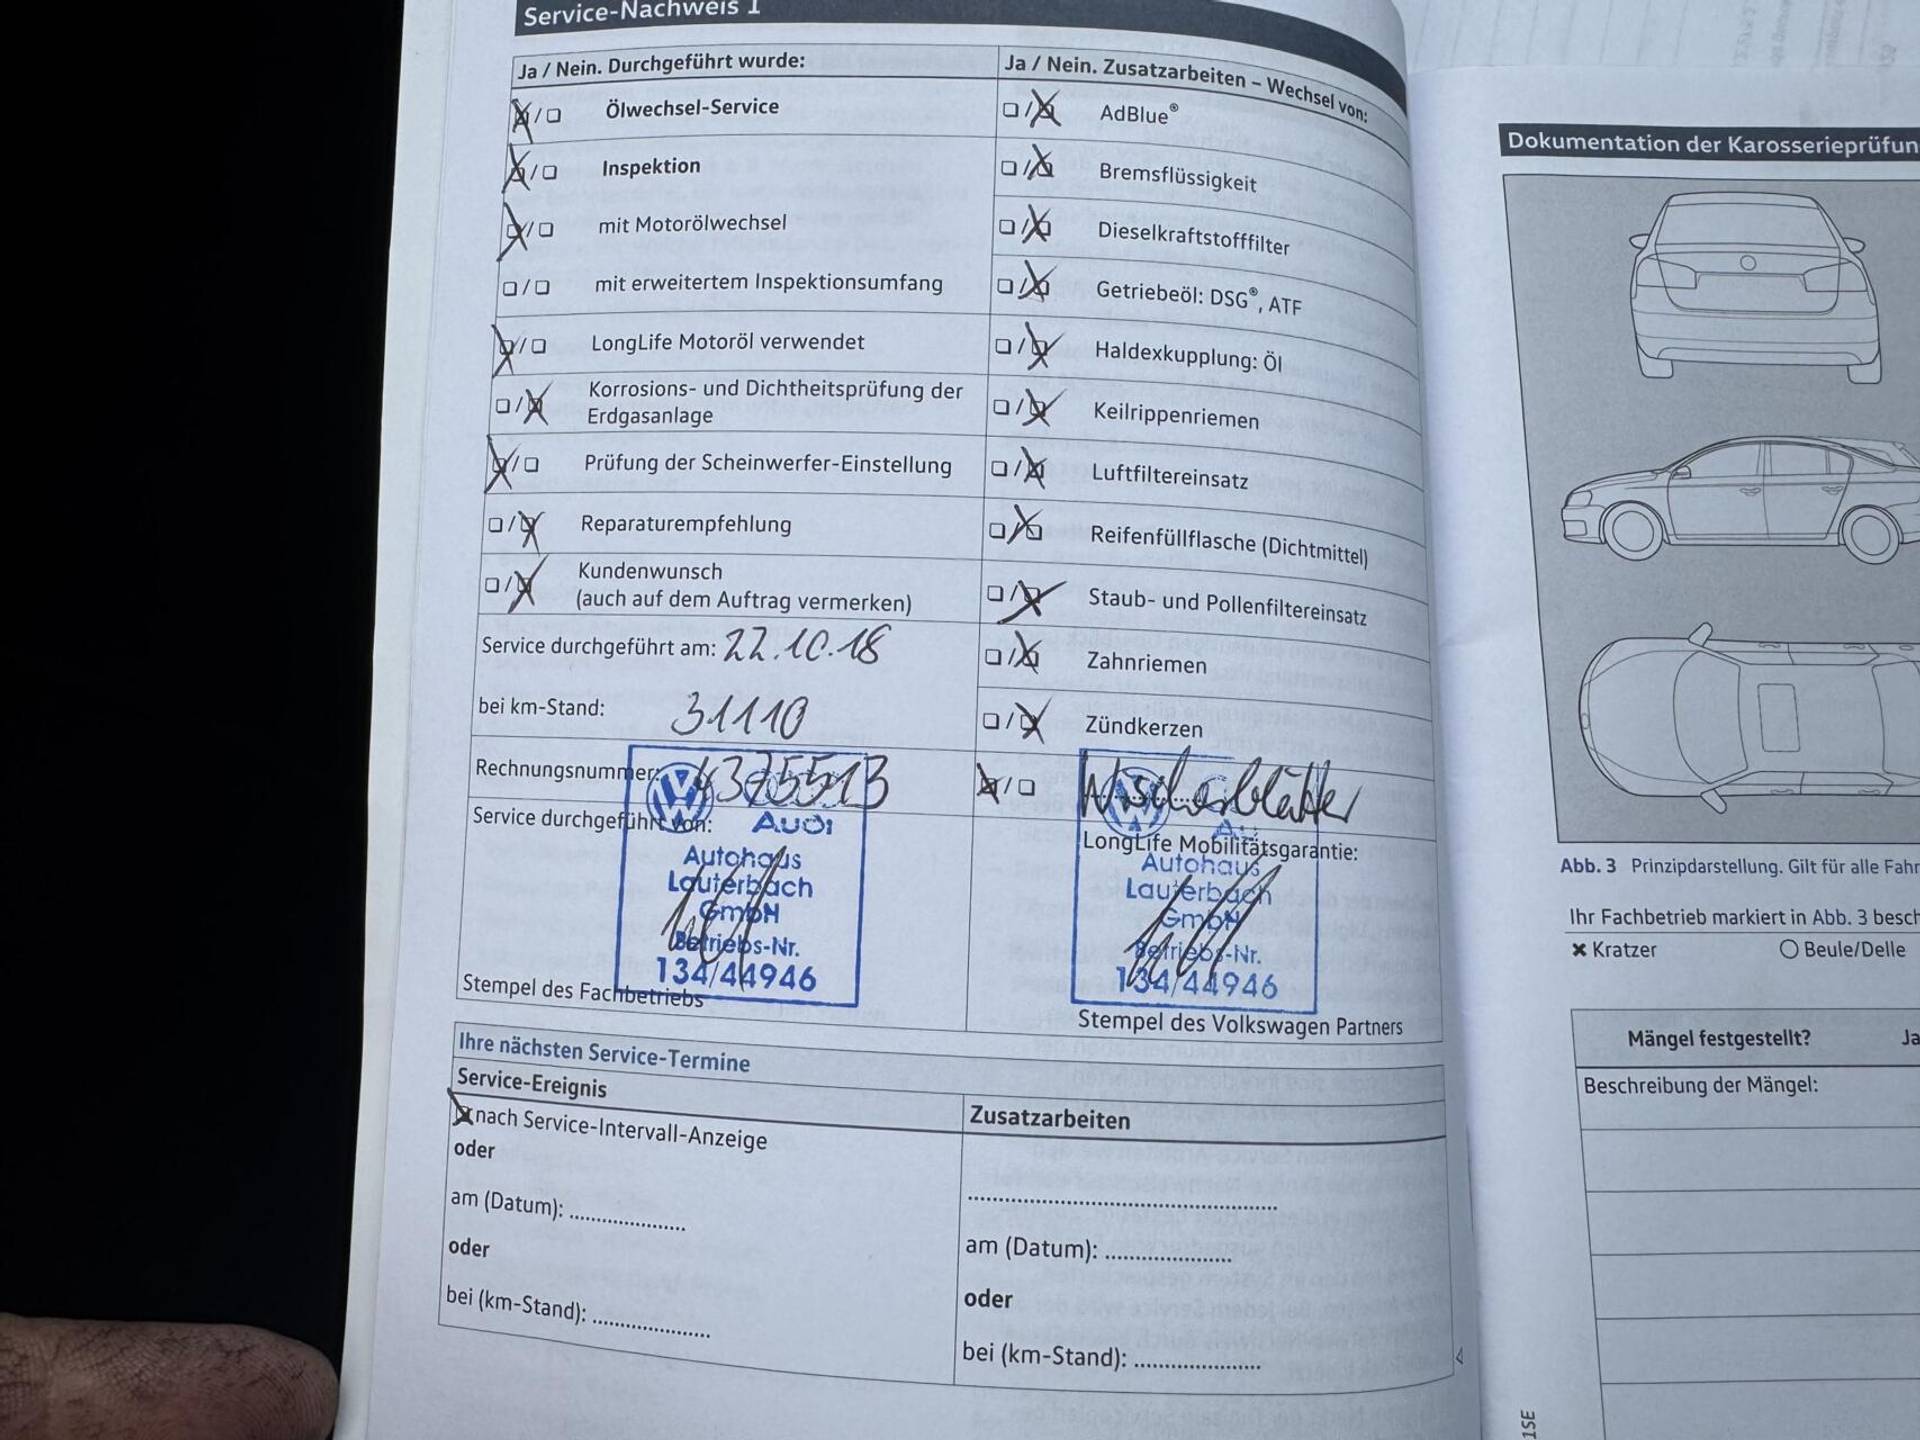 Service-Nachweis 1
Ja / Nein. Durchgeführt wurde:
Ölwechsel-Service
Inspektion
mit Motorölwechsel
mit erweitertem Inspektionsumfang
LongLife Motoröl verwendet
Korrosions- und Dichtheitsprüfung der
Erdgasanlage
Prüfung der Scheinwerfer-Einstellung
Reparaturempfehlung
Kundenwunsch
(auch auf dem Auftrag vermerken)
Service durchgeführt am: 22.10.18
bei km-Stand: 31110
Rechnungsnummer: 4375513
Service durchgeführt von:
Audi
Autohaus
Lauterbach
GmbH
Betriebs-Nr.
134/44946
Stempel des Fachbetriebs
Ja / Nein. Zusatzarbeiten – Wechsel von:
AdBlue®
Bremsflüssigkeit
Dieselkraftstofffilter
Getriebeöl: DSG®, ATF
Haldexkupplung: Öl
Keilrippenriemen
Luftfiltereinsatz
Reifenfüllflasche (Dichtmittel)
Staub- und Pollenfiltereinsatz
Zahnriemen
Zündkerzen
Wischerblätter
LongLife Mobilitätsgarantie:
Autohaus
Lauterbach
GmbH
Betriebs-Nr.
134/44946
Stempel des Volkswagen Partners
Ihre nächsten Service-Termine
Service-Ereignis
nach Service-Intervall-Anzeige
oder
am (Datum): ....................
oder
bei (km-Stand): ....................
Zusatzarbeiten
..................................................
am (Datum): ....................
oder
bei (km-Stand): ....................
Dokumentation der Karosserieprüfun
Abb. 3 Prinzipdarstellung. Gilt für alle Fahr
Ihr Fachbetrieb markiert in Abb. 3 besch
Kratzer
Beule/Delle
Mängel festgestellt? Ja
Beschreibung der Mängel: